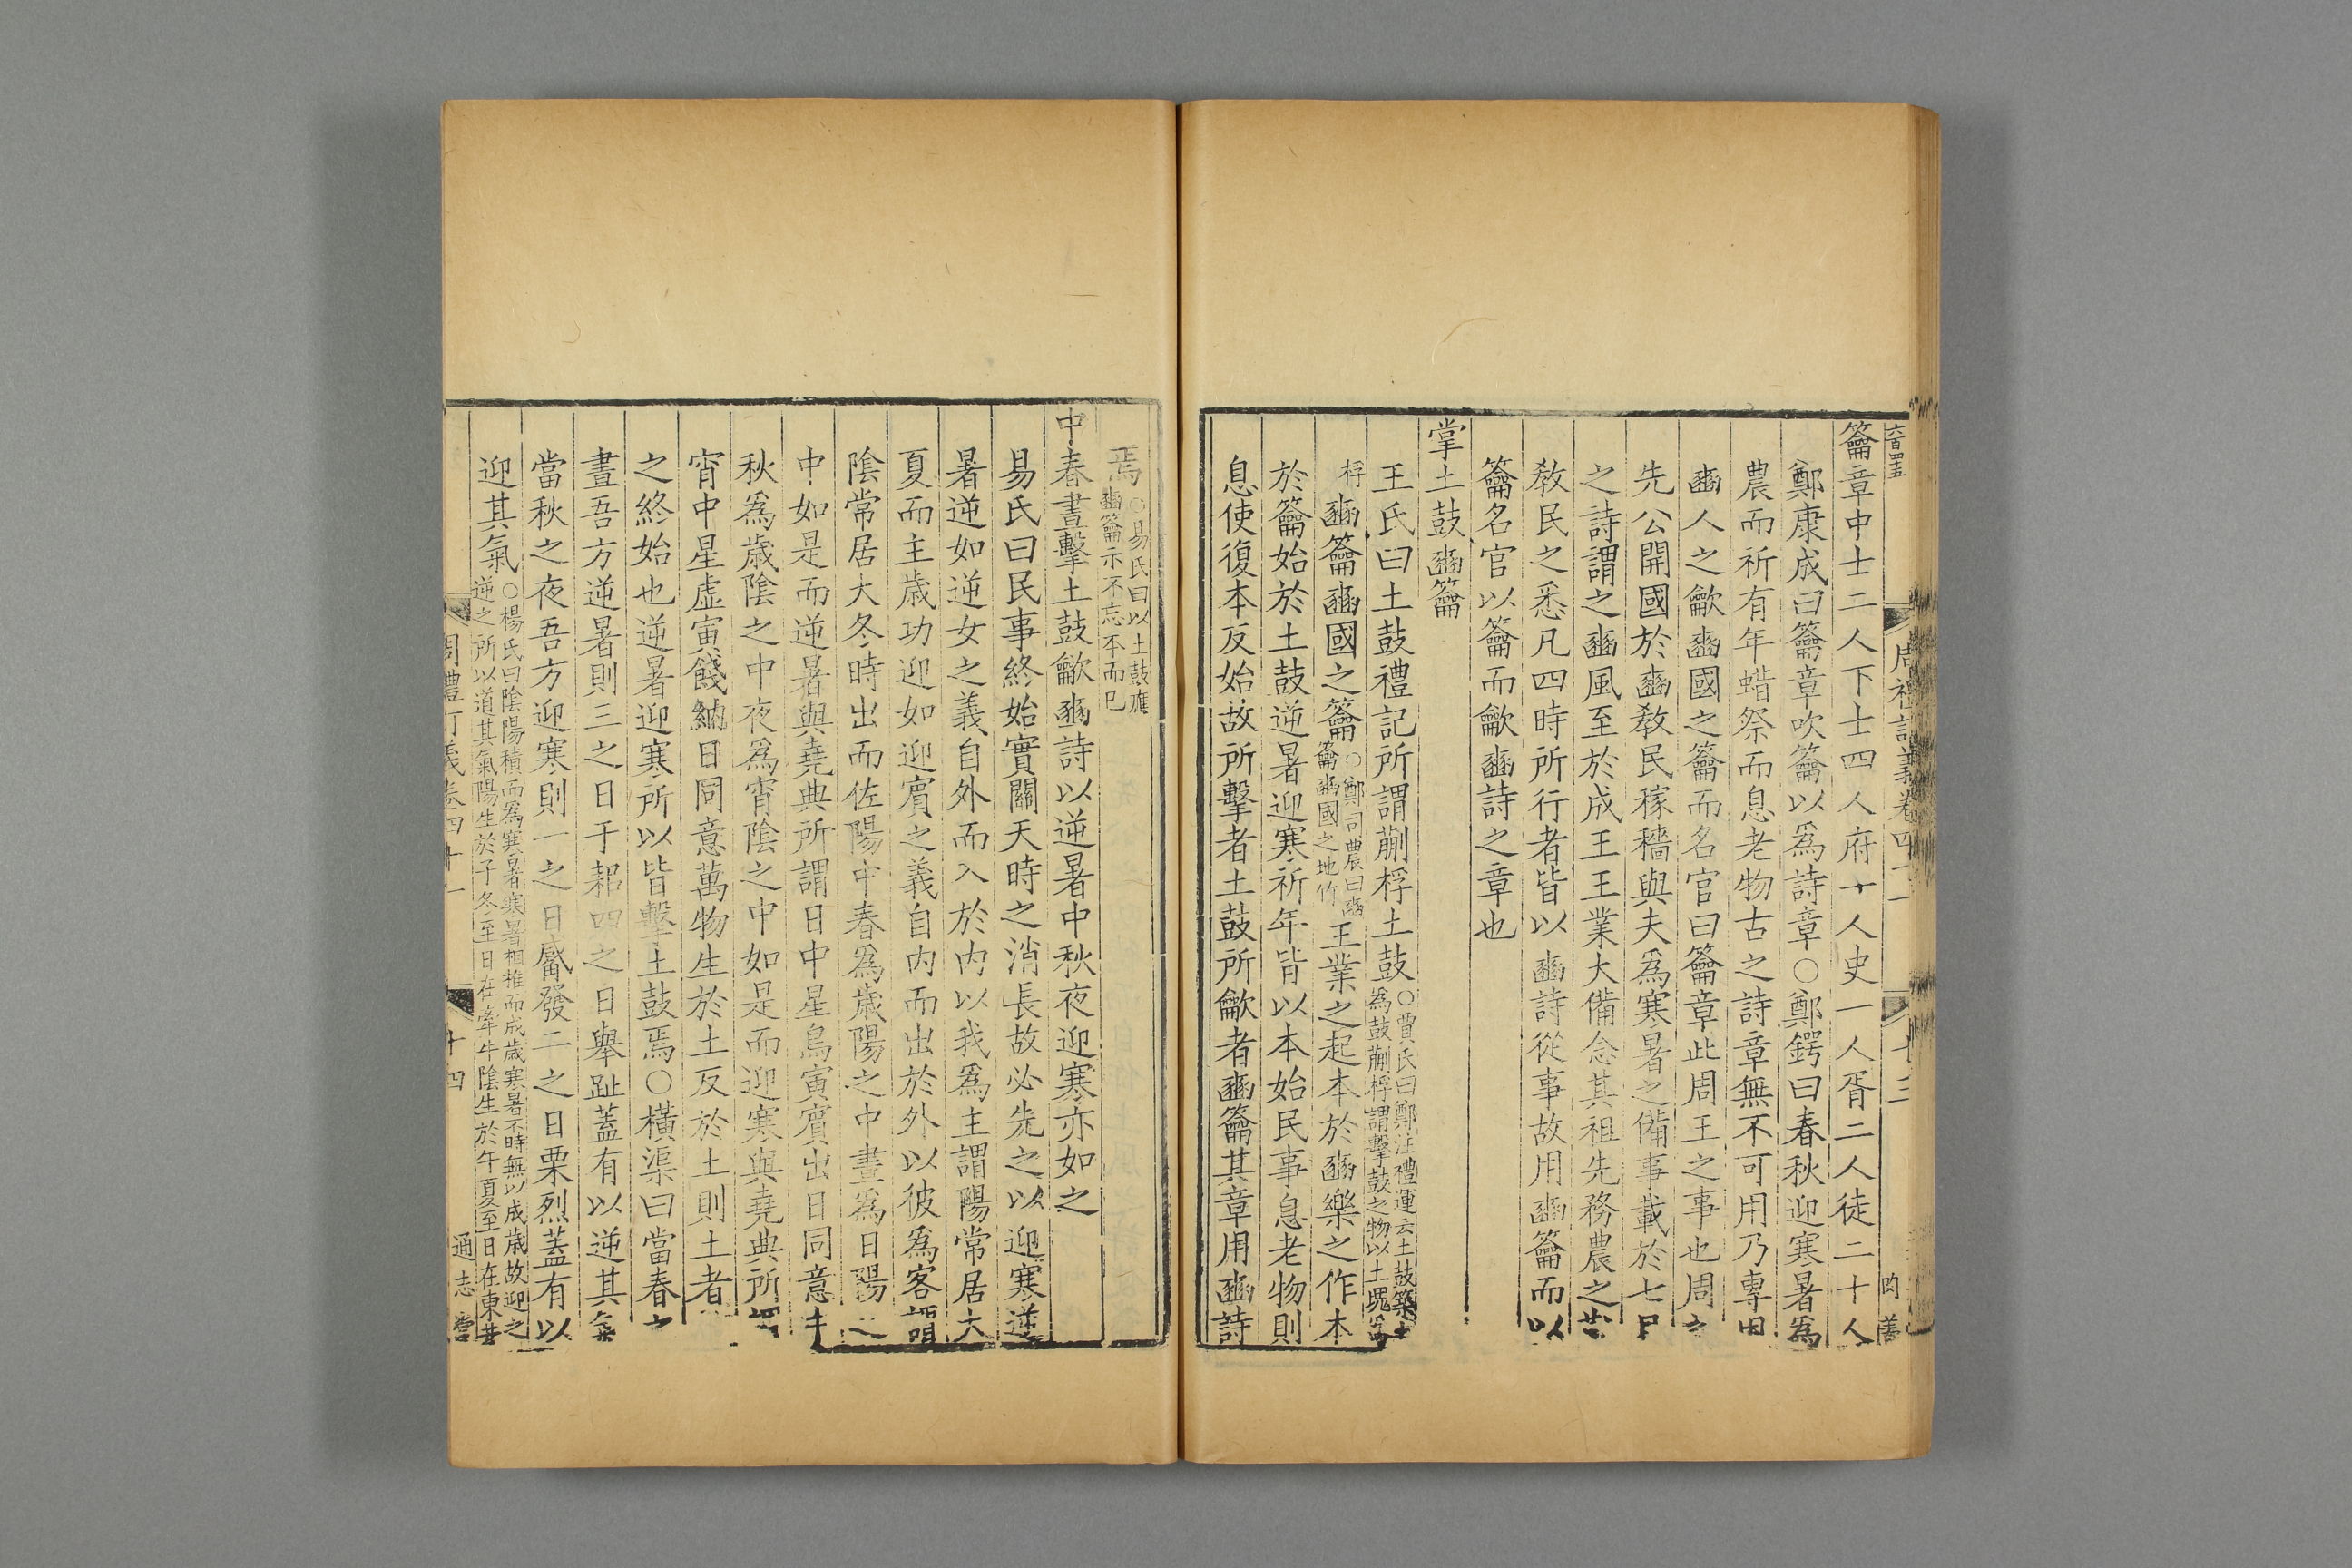 六百四五
周禮訂義卷四十一
十三
籥章中士二人下士四人府一人史一人胥二人徒二十人
鄭康成曰籥章吹籥以爲詩章○鄭鍔曰春秋迎寒暑爲
農而祈有年蜡祭而息老物古之詩章無不可用乃專用
豳人之龡豳國之籥而名官曰籥章此周王之事也周之
先公開國於豳敎民稼穡與夫爲寒暑之備事載於七月
之詩謂之豳風至於成王王業大備念其祖先務農之
敎民之悉凡四時所行者皆以豳詩從事故用豳籥而以
籥名官以籥而龡豳詩之章也
掌土鼓豳籥
王氏曰土鼓禮記所謂蒯桴土鼓○賈氏曰鄭注禮運云土鼓築土爲鼓蒯桴謂擊鼓之物以土塊爲
桴豳籥豳國之籥○鄭司農曰豳籥豳國之地竹王業之起本於豳樂之作本
於籥始於土鼓逆暑迎寒祈年皆以本始民事息老物則
息使復本反始故所擊者土鼓所龡者豳籥其章用豳詩
焉○易氏曰以土鼓應豳籥示不忘本而已
中春晝擊土鼓龡豳詩以逆暑中秋夜迎寒亦如之
易氏曰民事終始實關天時之消長故必先之以迎寒逆
暑逆如逆女之義自外而入於内以我爲主謂陽常居大
夏而主歲功迎如迎賓之義自内而出於外以彼爲客謂
陰常居大冬時出而佐陽中春爲歲陽之中晝爲日陽之
中如是而逆暑與堯典所謂日中星鳥寅賓出日同意
秋爲歲陰之中夜爲宵陰之中如是而迎寒與堯典所謂
宵中星虛寅餞納日同意萬物生於土反於土則土者
之終始也逆暑迎寒所以皆擊土鼓焉○橫渠曰當春之
晝吾方逆暑則三之日于耜四之日舉趾蓋有以逆其氣
當秋之夜吾方迎寒則一之日觱發二之日栗烈蓋有以
迎其氣○楊氏曰陰陽積而爲寒暑寒暑相推而成歲寒暑不時無以成歲故迎之逆之所以道其氣陽生於子冬至日在牽牛陰生於午夏至日在東井
周禮訂義卷四十一
十四
通志堂